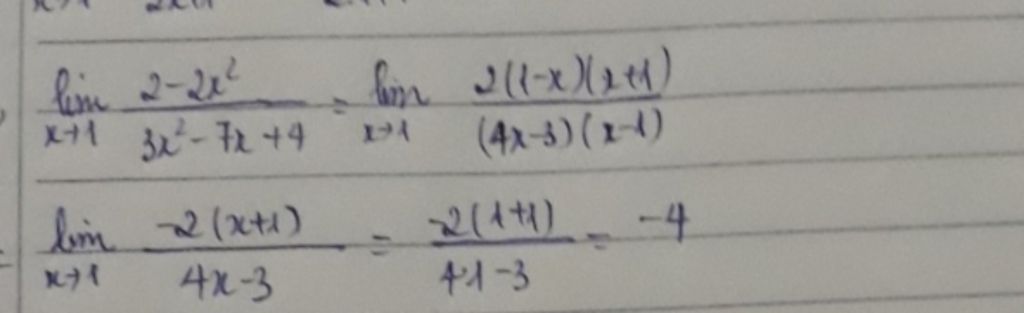 lim x→1 (2-2x²)/(3x²-7x+4) = lim x→1 2(1-x)(x+1)/(4x-3)(x-1)
= lim x→1 -2(x+1)/(4x-3) = -2(1+1)/(4·1-3) = -4